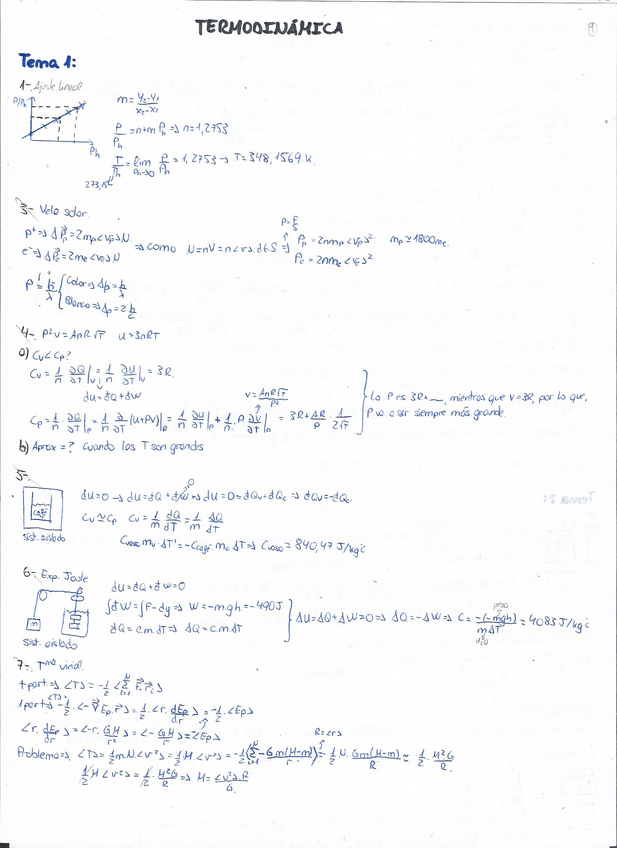 TERMODINÁMICA
Tema 1:
1-. Ajuste lineal
P/Ph
m = y2-y1 / x2-x1
P/Ph = n+m Ph ⇒ n=1,2753
Ph
T/Th = lim Ph→0 P/Ph = 1,2753 → T=348,1569 K.
273,15
3-. Vela solar.
P=F/S
p+ ⇒ ΔPp = 2mp<vp>N
e- ⇒ ΔPe = 2me<ve>N
⇒ como N=nV=n<v>.dt.S ⇒ Pp = 2nmp<vp>² mp ≃ 1800me.
Pe = 2nme<ve>²
P = h/λ { Color ⇒ Δp = h/λ
Blanco ⇒ Δp = 2h/λ
4-. P²V = AnR√T u = 3nRT
a) Cv<Cp?
Cv = 1/n ∂Q/∂T|v = 1/n ∂U/∂T|v = 3R.
dU=đQ+đW
V = AnR√T/P²
Cp = 1/n ∂Q/∂T|p = 1/n ∂/∂T (U+PV)|p = 1/n ∂U/∂T|p + 1/n P ∂V/∂T|p = 3R + AR/P · 1/2√T
La P es 3R+__, mientras que V=3R, por lo que,
P va a ser siempre más grande.
b) Aprox = ? Cuando las T son grandes
5-.
café
Sist. aislado
dU=0 → dU=đQ+đW ⇒ dU=0=đQv+đQc ⇒ đQv=-đQc
Cv ≃ Cp Cv = 1/m đQ/dT = 1/m ΔQ/ΔT
Cvaso mv · ΔT' = -Ccafé mc ΔT ⇒ Cvaso = 840,47 J/kg°C
6-. Exp. Joule
M
Sist. aislado
dU=đQ+đW=0
∫đW=∫F·dy ⇒ W=-m.g.h=-490J
đQ=c.m.dT ⇒ ΔQ=c.m.ΔT
ΔU=ΔQ+ΔW=0 ⇒ ΔQ=-ΔW ⇒ C = -(-mgh)/mΔT = 4083 J/kg°C
peso
H2O
7-. Tma virial.
+part ⇒ <T> = -1/2 <Σ Fi·ri>
1part ⇒ <T> = -1/2 <-∇Ep.r> = 1/2 <r. dEp/dr> = -1/2 <Ep>
<r. dEp/dr> = <-r. GM/r²> = <-GM/r> = <Ep>
R=<r>
Problema ⇒ <T> = 1/2 m N.<v²> = 1/2 M.<v²> = -1/2 (Σ -Gm(M-m)/r) = 1/2 N. Gm(M-m)/R ≃ 1/2 · M²G/R
1/2 M <v²> = 1/2 · M²G/R ⇒ M = <v²>.R/G